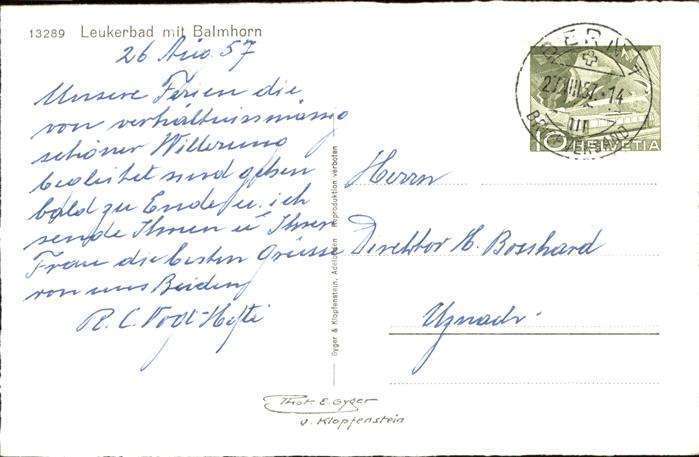 13289 Leukerbad mit Balmhorn
26 Aug. 57
Unsere Ferien die
von verhältnismässig
schöner Witterung
begleitet sind gehen
bald zu Ende u. ich
sende Ihnen u Ihrer
Frau die besten Grüsse
von uns Beiden
R. C. Vogt-Hefti
BERN 1
27.VIII.57.-14
BRIEFVERSAND
10 HELVETIA
Herrn
Direktor H. Bosshard
Uznach
Gyger & Klopfenstein, Adelboden Reproduktion verboten
Phot. E. Gyger
u. Klopfenstein